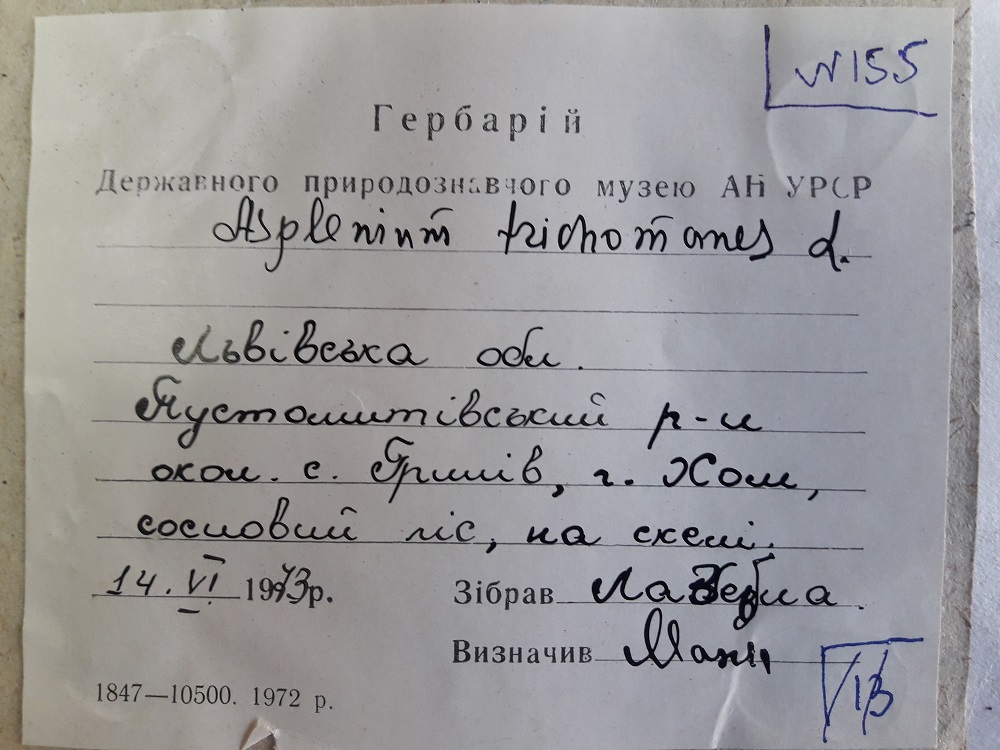 №155
Гербарій
Державного природознавчого музею АН УРСР
Asplenium trichomanes L.
Львівська обл.
Пустомитівський р-н
окол. с. Гринів, г. Хом,
сосновий ліс, на скелі.
14. VI 1973р. Зібрав
Визначив
1847—10500. 1972 р.